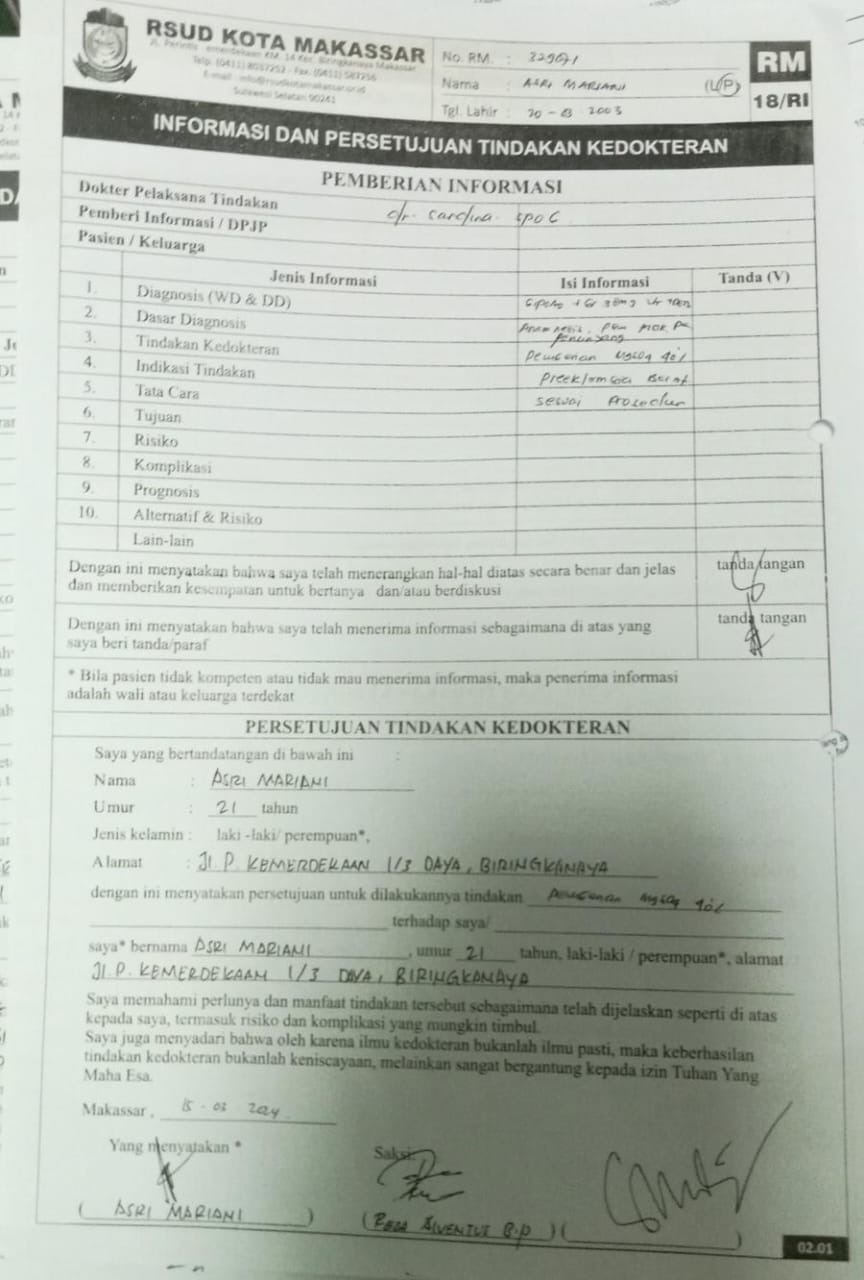 RSUD KOTA MAKASSAR
Jl. Perintis Kemerdekaan KM. 14 Kec. Biringkanaya Makassar
Telp. (0411)
E-mail : info@rsudkotamakassar.or.id
Sulawesi Selatan 90241
No. RM. :
Nama : ASRI MARIANI (L/P)
Tgl. Lahir : 2003
RM
18/RI
INFORMASI DAN PERSETUJUAN TINDAKAN KEDOKTERAN
PEMBERIAN INFORMASI
Dokter Pelaksana Tindakan
Pemberi Informasi / DPJP dr.
Pasien / Keluarga
Jenis Informasi Isi Informasi Tanda (V)
1. Diagnosis (WD & DD)
2. Dasar Diagnosis
3. Tindakan Kedokteran
4. Indikasi Tindakan Preeklamsia Berat
5. Tata Cara sesuai Prosedur
6. Tujuan
7. Risiko
8. Komplikasi
9. Prognosis
10. Alternatif & Risiko
Lain-lain
Dengan ini menyatakan bahwa saya telah menerangkan hal-hal diatas secara benar dan jelas tanda tangan
dan memberikan kesempatan untuk bertanya dan/atau berdiskusi
Dengan ini menyatakan bahwa saya telah menerima informasi sebagaimana di atas yang tanda tangan
saya beri tanda/paraf
* Bila pasien tidak kompeten atau tidak mau menerima informasi, maka penerima informasi
adalah wali atau keluarga terdekat
PERSETUJUAN TINDAKAN KEDOKTERAN
Saya yang bertandatangan di bawah ini :
Nama : ASRI MARIANI
Umur : 21 tahun
Jenis kelamin : laki -laki/ perempuan*,
Alamat : Jl. P. KEMERDEKAAN 1/3 DAYA, BIRINGKANAYA
dengan ini menyatakan persetujuan untuk dilakukannya tindakan
terhadap saya/
saya* bernama ASRI MARIANI , umur 21 tahun, laki-laki / perempuan*, alamat
Jl. P. KEMERDEKAAN 1/3 DAYA, BIRINGKANAYA
Saya memahami perlunya dan manfaat tindakan tersebut sebagaimana telah dijelaskan seperti di atas
kepada saya, termasuk risiko dan komplikasi yang mungkin timbul.
Saya juga menyadari bahwa oleh karena ilmu kedokteran bukanlah ilmu pasti, maka keberhasilan
tindakan kedokteran bukanlah keniscayaan, melainkan sangat bergantung kepada izin Tuhan Yang
Maha Esa.
Makassar ,
Yang menyatakan * Saksi:
( ASRI MARIANI ) ( ) ( )
02.01